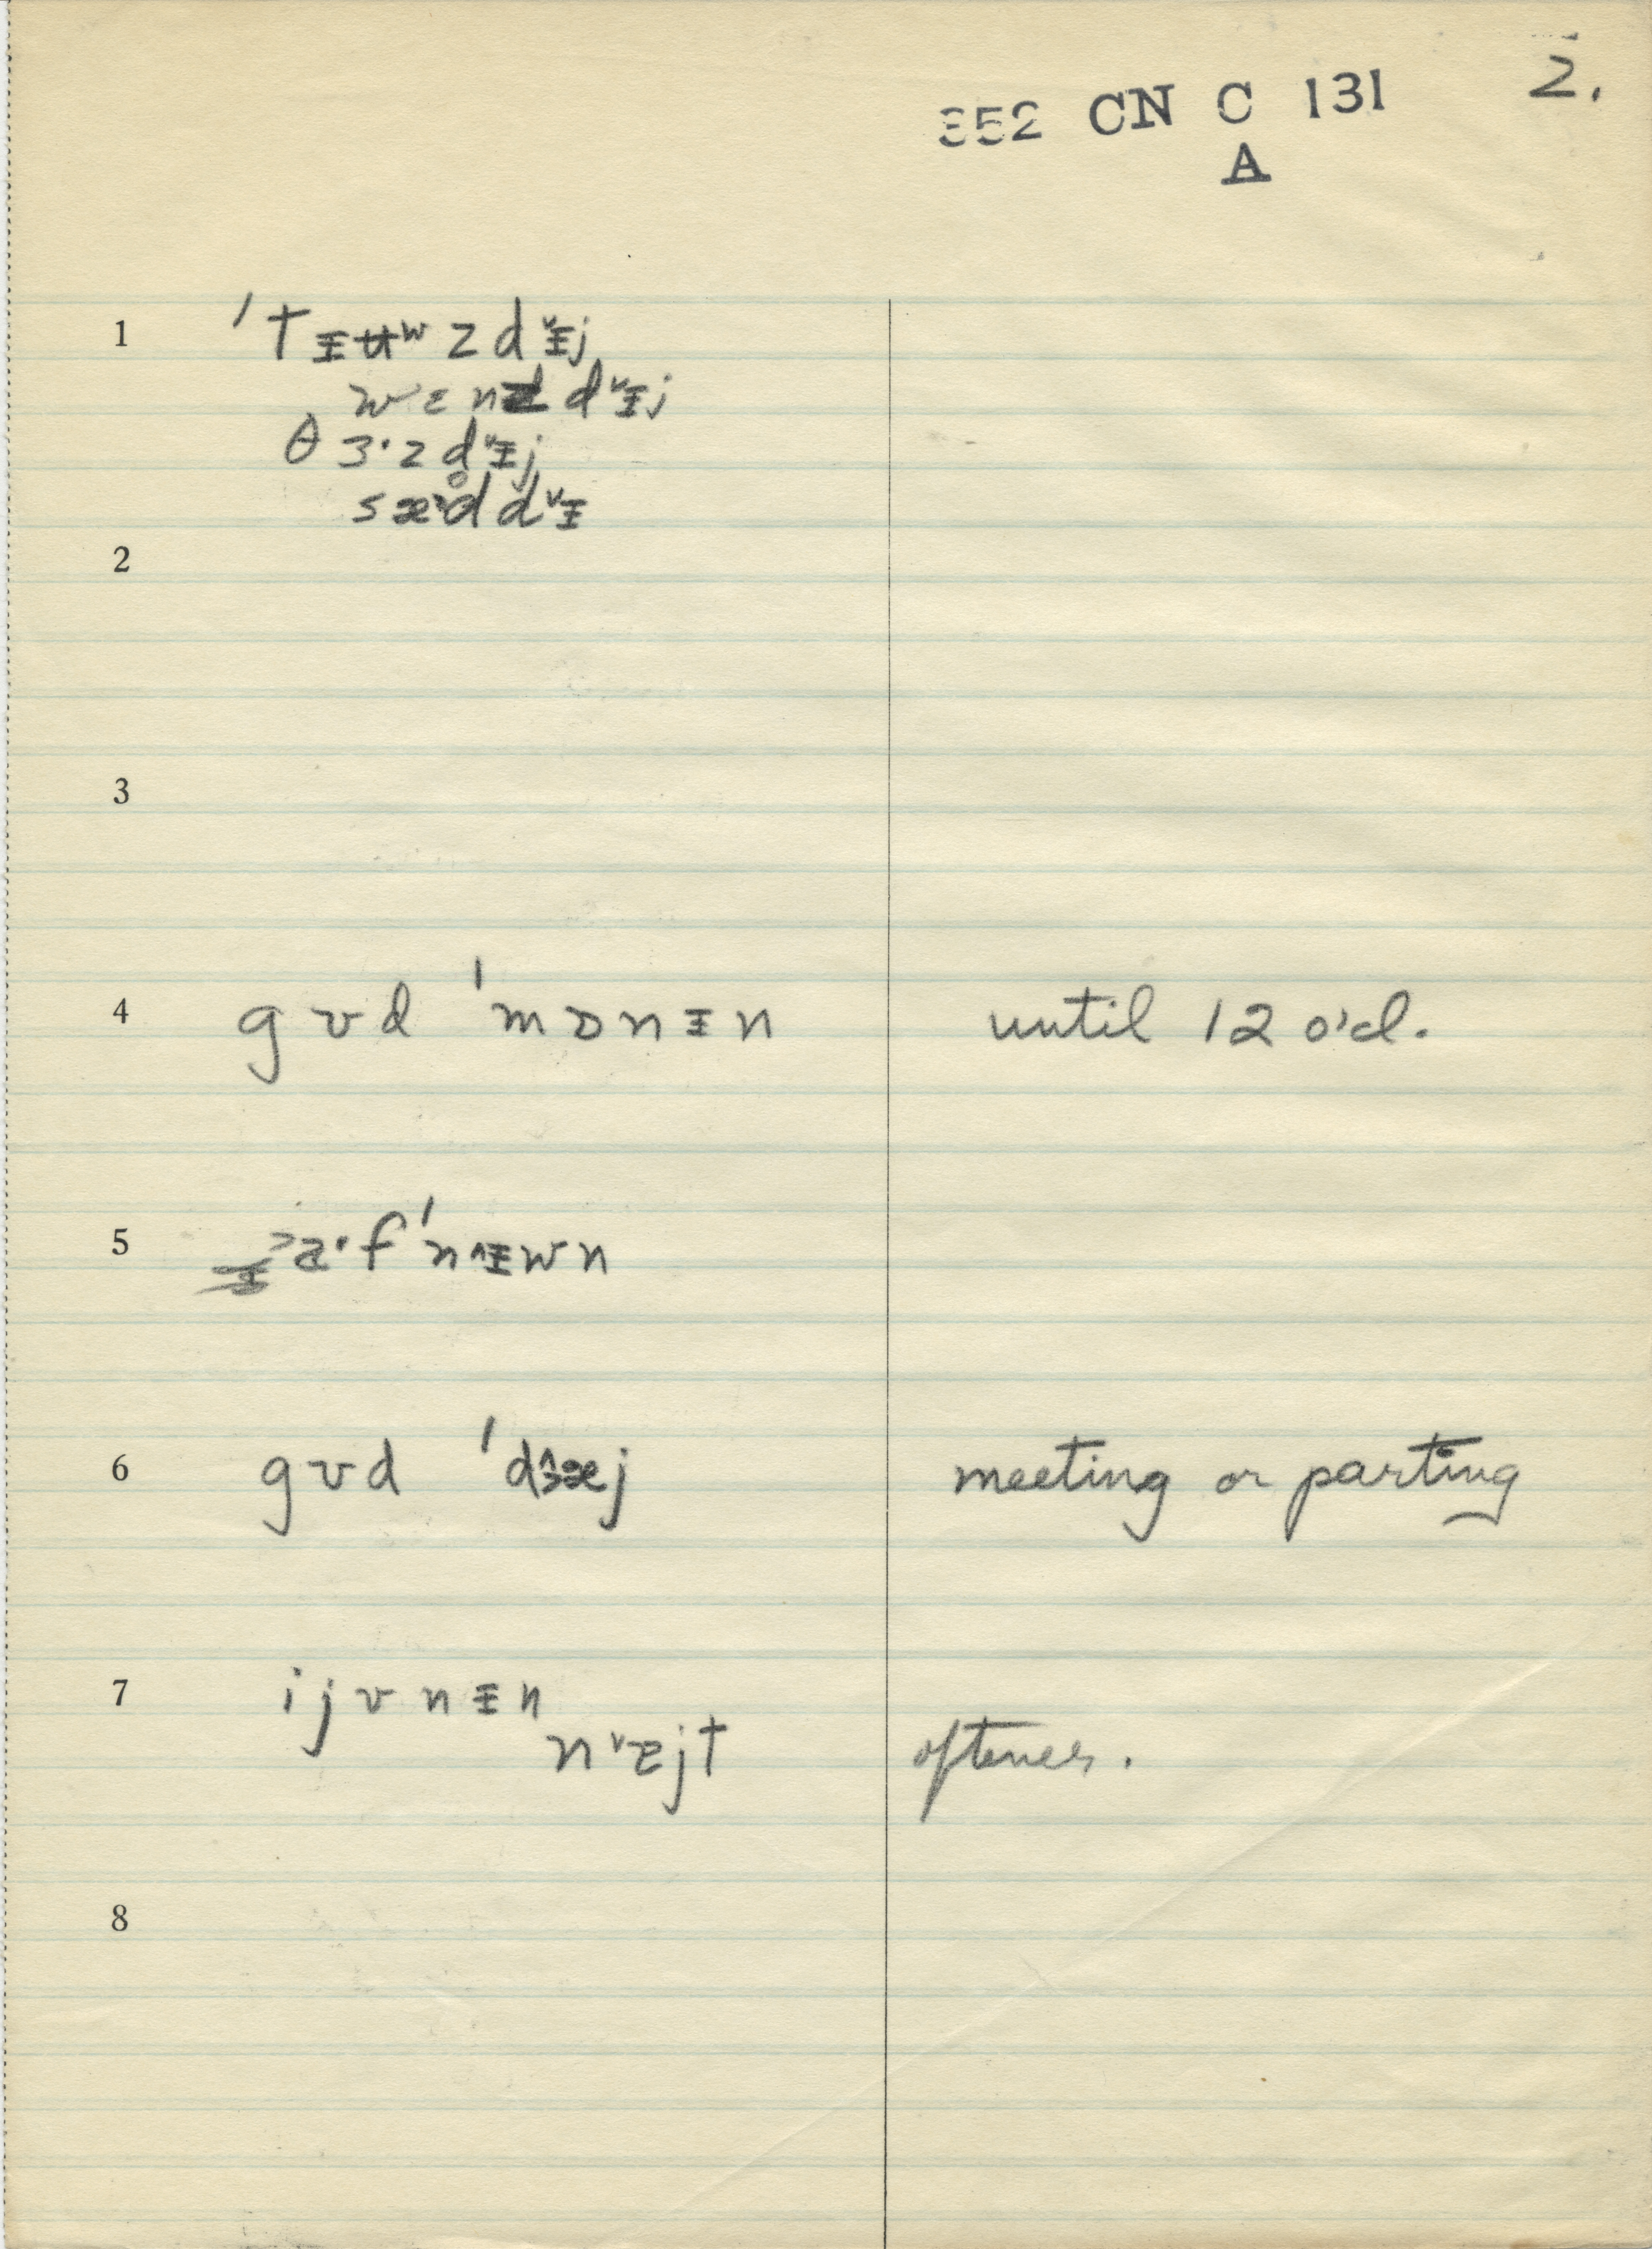 2.
352 CN C 131
A
1 ˈtɪʉʷzdᵛɪj
wɛnzdᵛɪj
θɜ·zdᵛɪj
sæ·d̥dᵛɪ
2
3
4 gʊd ˈmɒnɪn until 12 o'cl.
5 f ˈn^ɪwn
6 gʊd ˈdɜæj meeting or parting
7 ijvnɪn
nᵛɛjt oftener.
8